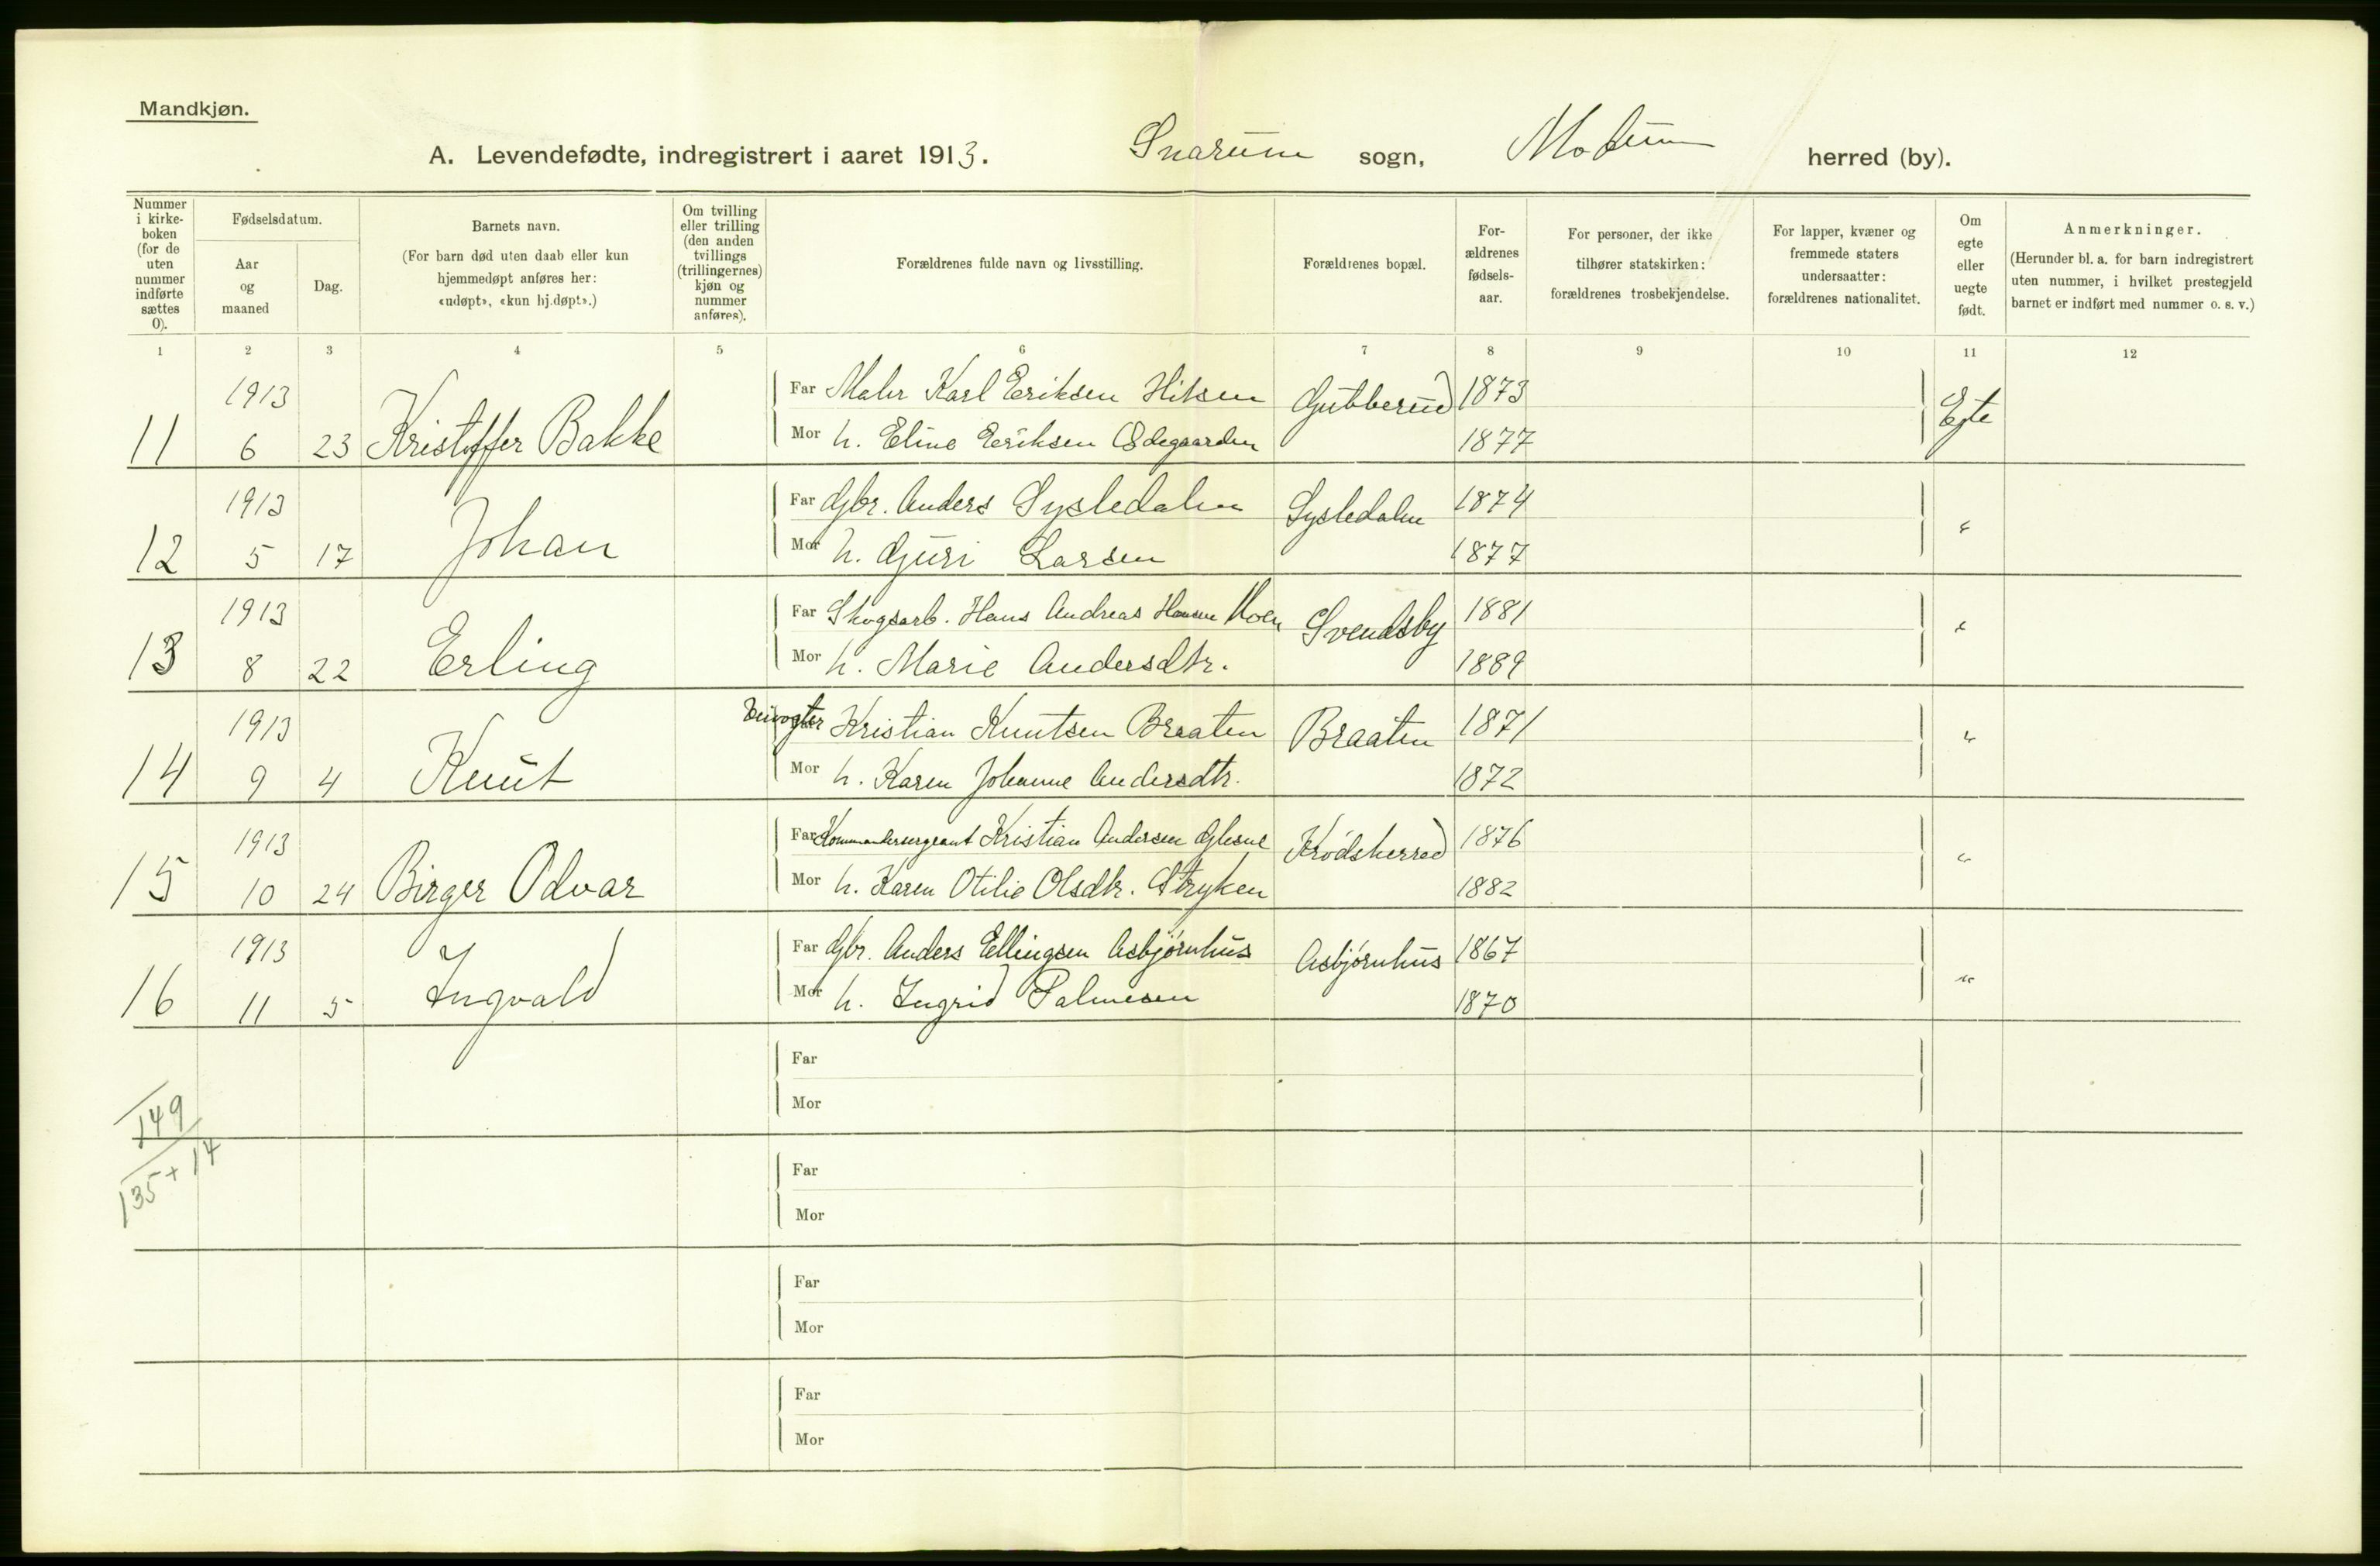 Mandkjøn.
A. Levendefødte, indregistrert i aaret 1913. Snarum sogn, Modum herred (by).
Nummer i kirke-boken (for de uten nummer indførte sættes 0).
Fødselsdatum.
Aar og maaned
Dag.
Barnets navn.
(For barn død uten daab eller kun hjemmedøpt anføres her: «udøpt», «kun hj.døpt».)
Om tvilling eller trilling (den anden tvillings (trillingernes) kjøn og nummer anføres).
Forældrenes fulde navn og livsstilling.
Forældrenes bopæl.
For-ældrenes fødsels-aar.
For personer, der ikke tilhører statskirken: forældrenes trosbekjendelse.
For lapper, kvæner og fremmede staters undersaatter: forældrenes nationalitet.
Om egte eller uegte født.
Anmerkninger.
(Herunder bl. a. for barn indregistrert uten nummer, i hvilket prestegjeld barnet er indført med nummer o. s. v.)
1 2 3 4 5 6 7 8 9 10 11 12
1913 Far Maler Karl Eriksen Hilsen Gubberud 1873 Egte
11 6 23 Kristoffer Bakke Mor h. Eline Eriksen Ødegaarden 1877
1913 Far Gbr. Anders Sysledalen Sysledalen 1874 "
12 5 17 Johan Mor h. Guri Larsen 1877
1913 Far Skogsarb. Hans Andreas Hansen Moen Svendsby 1881 "
13 8 22 Erling Mor h. Marie Andersdtr. 1889
1913 Veivogter Kristian Knutsen Braaten Braaten 1871 "
14 9 4 Knut Mor h. Karen Johanne Andersdtr. 1872
1913 Far Kommandersergeant Kristian Andersen Glesne Krødsherred 1876 "
15 10 24 Birger Odvar Mor h. Karen Otilie Olsdtr. Stryken 1882
1913 Far Gbr. Anders Ellingsen Asbjørnhus Asbjørnhus 1867 "
16 11 5 Ingvald Mor h. Ingrid Palmesen 1870
Far
Mor
149
135+14
Far
Mor
Far
Mor
Far
Mor